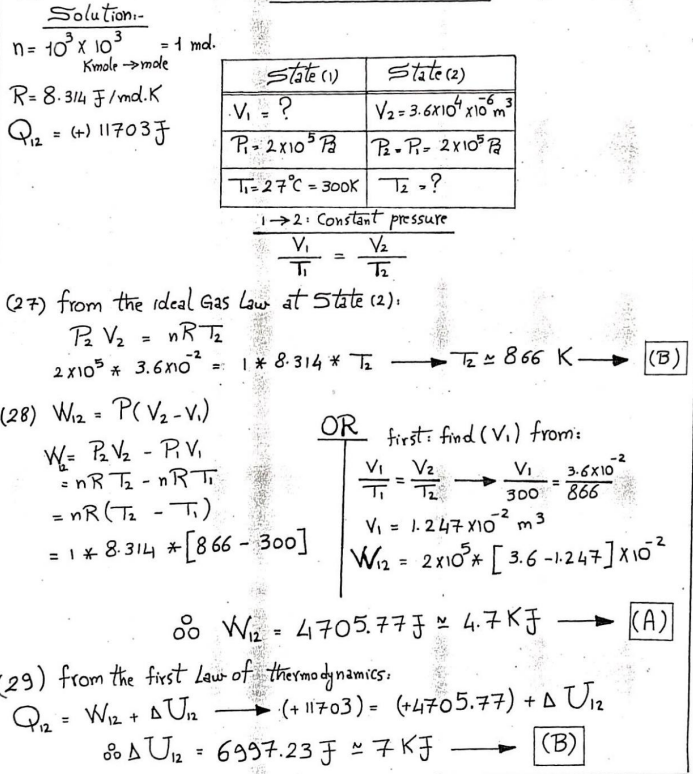 Solution:-
n= 10³ x 10³ = 1 mol.
Kmole → mole
R= 8.314 J/mol.K
Q₁₂ = (+) 11703 J
State (1) State (2)
V₁ = ? V₂ = 3.6x10⁴ x10⁻⁶ m³
P₁= 2x10⁵ Pa P₂ = P₁ = 2x10⁵ Pa
T₁=27°C = 300K T₂ =?
1→2: Constant pressure
V₁/T₁ = V₂/T₂
(27) from the ideal Gas Law at State (2):
P₂ V₂ = nR T₂
2x10⁵ * 3.6x10⁻² = 1 * 8.314 * T₂ → T₂ ≃ 866 K → (B)
(28) W₁₂ = P(V₂ - V₁)
W₁₂ = P₂V₂ - P₁V₁
= nR T₂ - nR T₁
= nR (T₂ - T₁)
= 1 * 8.314 * [866 - 300]
OR first: find (V₁) from:
V₁/T₁ = V₂/T₂ → V₁/300 = 3.6x10⁻²/866
V₁ = 1.247x10⁻² m³
W₁₂ = 2x10⁵ * [3.6 -1.247] x10⁻²
∴ W₁₂ = 4705.77 J ≃ 4.7 KJ → (A)
(29) from the first Law of thermodynamics:
Q₁₂ = W₁₂ + ΔU₁₂ → (+ 11703) = (+4705.77) + ΔU₁₂
∴ ΔU₁₂ = 6997.23 J ≃ 7 KJ → (B)